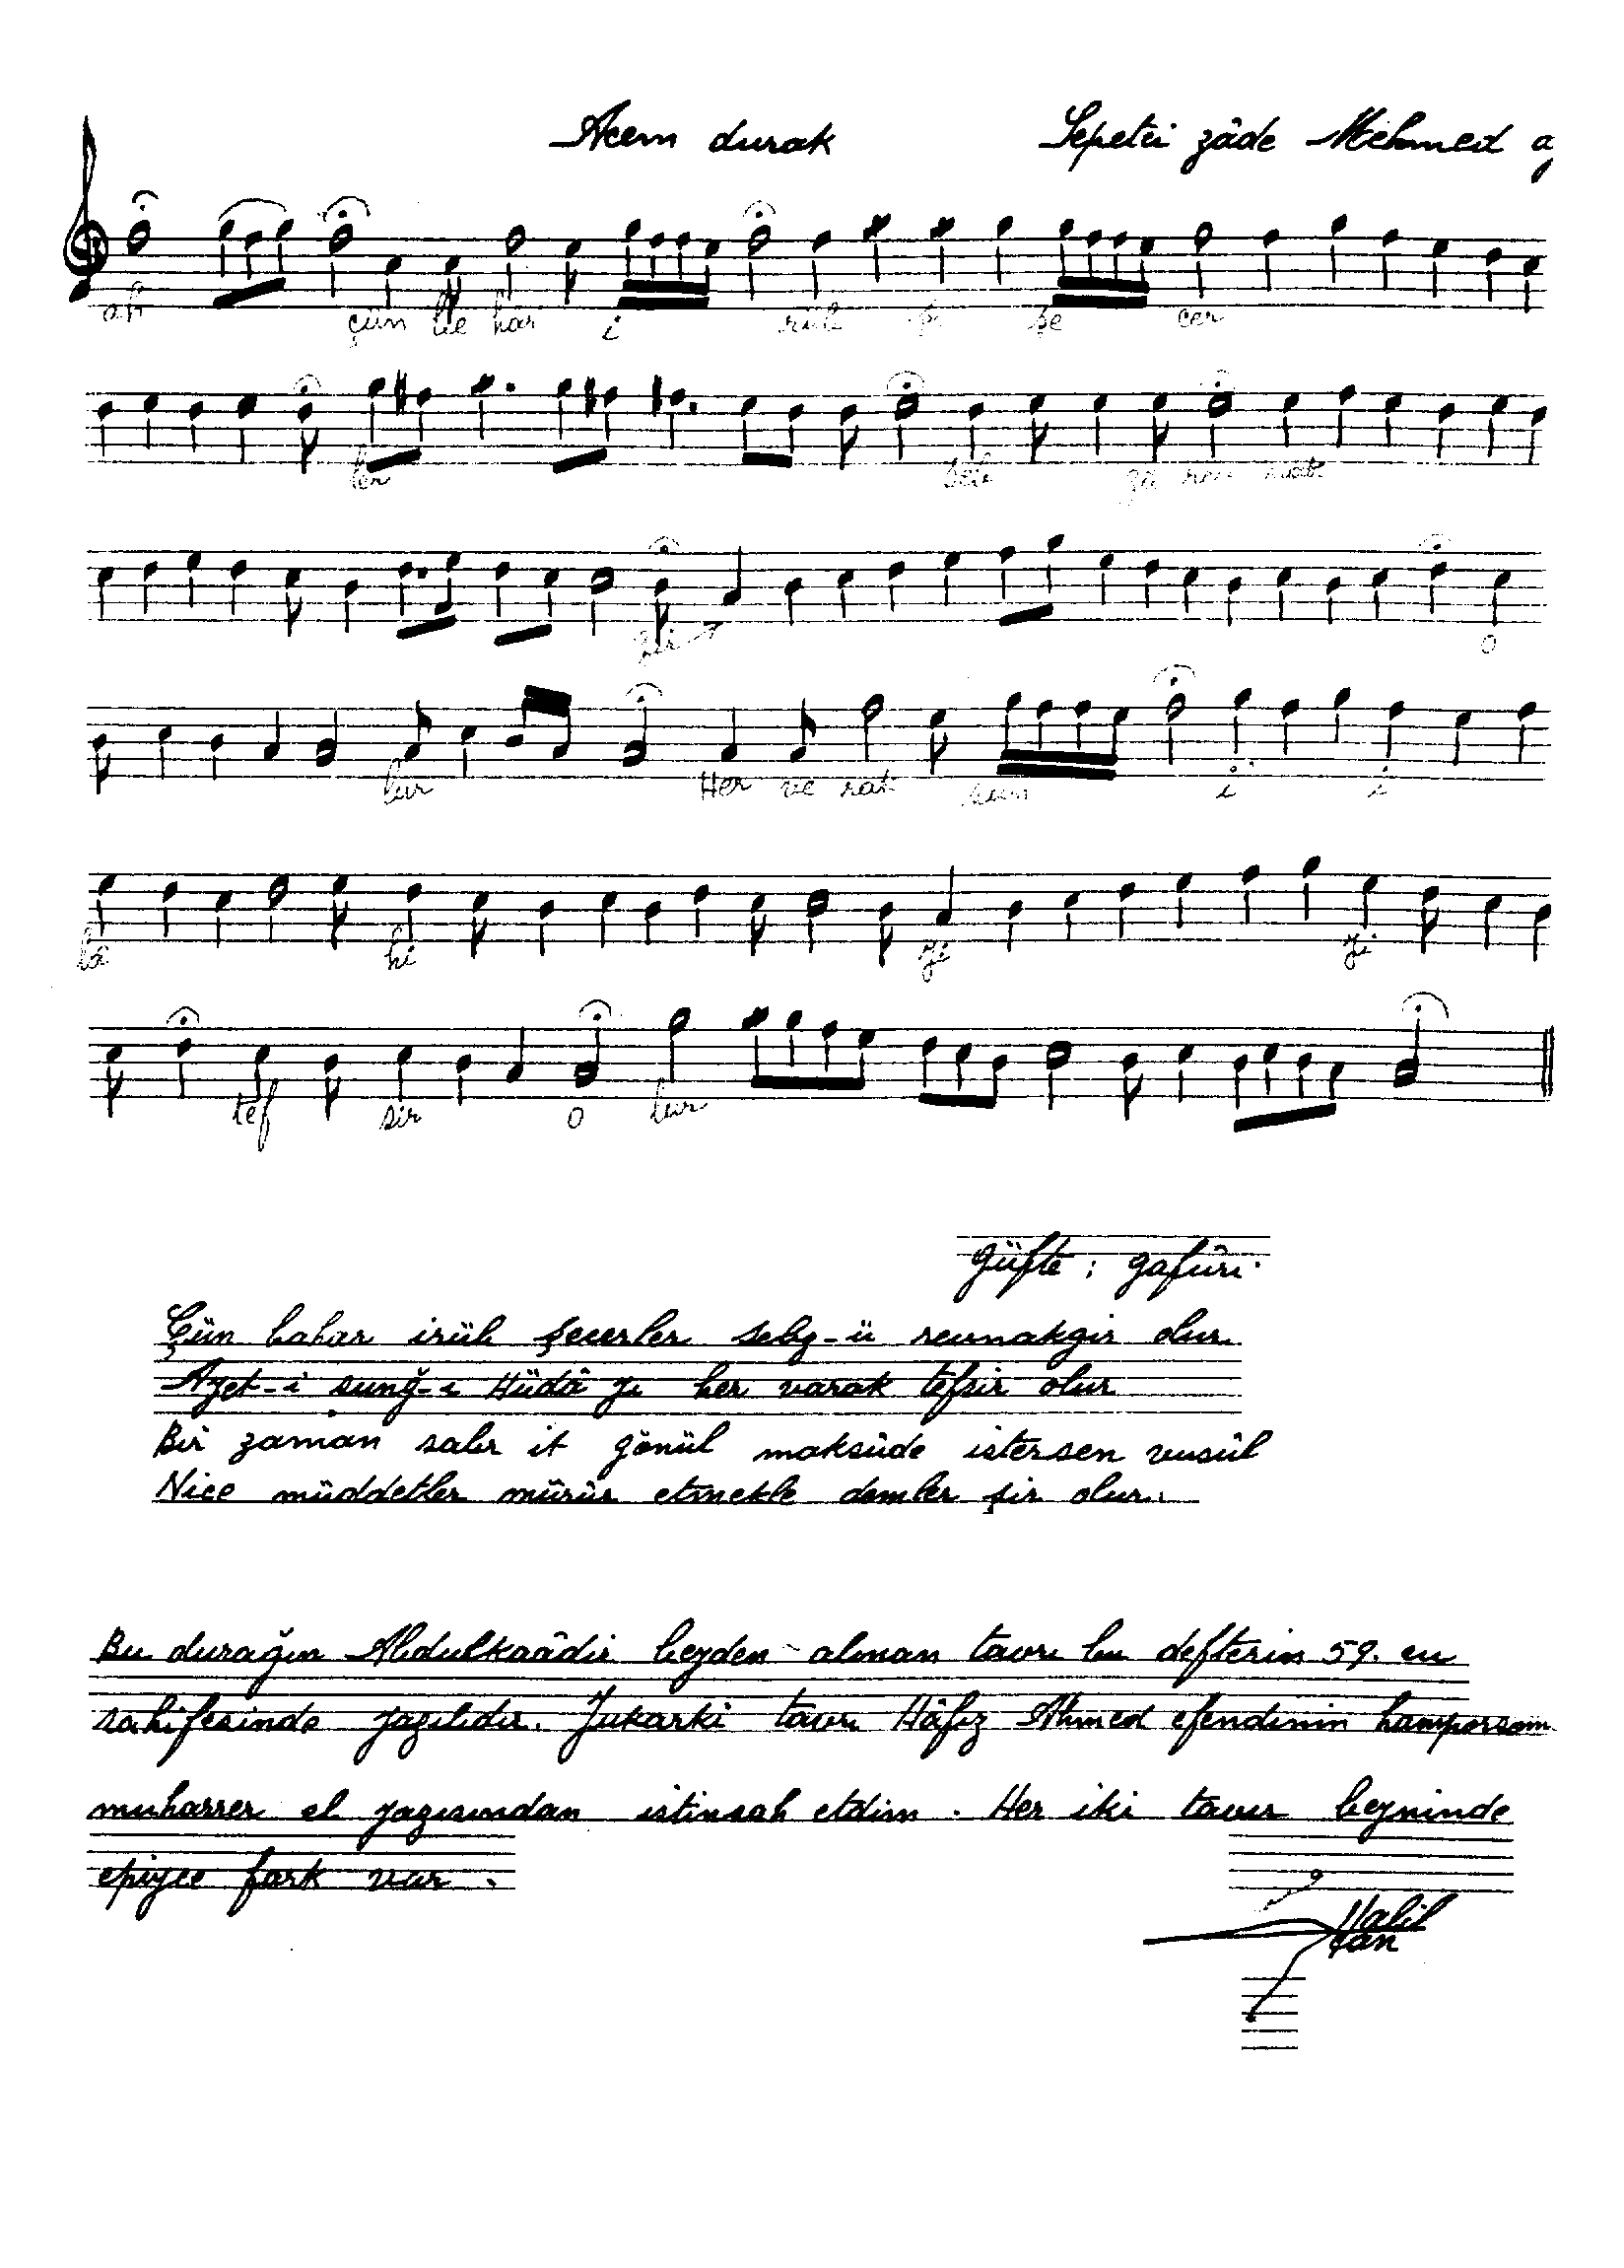 Acem durak Sepetci zâde Mehmed
ah çün be har i rüb şe cer
ler seb zü rev nak
gir o
lur Her ve rak sun i i
lâ hi yi yi
tef sir o lur
Güfte : Gafûri.
Çün bahar irüb şecerler sebz-ü revnakgir olur
Ayet-i sunğ-ı Hüdâ yı her varak tefsir olur
Bir zaman sabr it gönül maksûde istersen vusûl
Nice müddetler mürûr etmekle demler şir olur..
Bu durağın Abdulkaâdir beyden alınan tavrı bu defterin 59. cu
sahifesinde yazılıdır. Yukarki tavrı Hâfız Ahmed efendinin hamparsom
muharrer el yazısından istinsah etdim. Her iki tavır beyninde
epiyce fark var.
Halil
Can